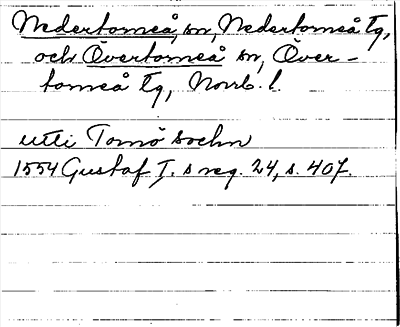 Nedertorneå, sn, Nedertorneå tg,
och Övertorneå sn, Över-
torneå tg, Norrb. l.
utti Tornö sochn
1554 Gustaf I. s reg. 24, s. 407.